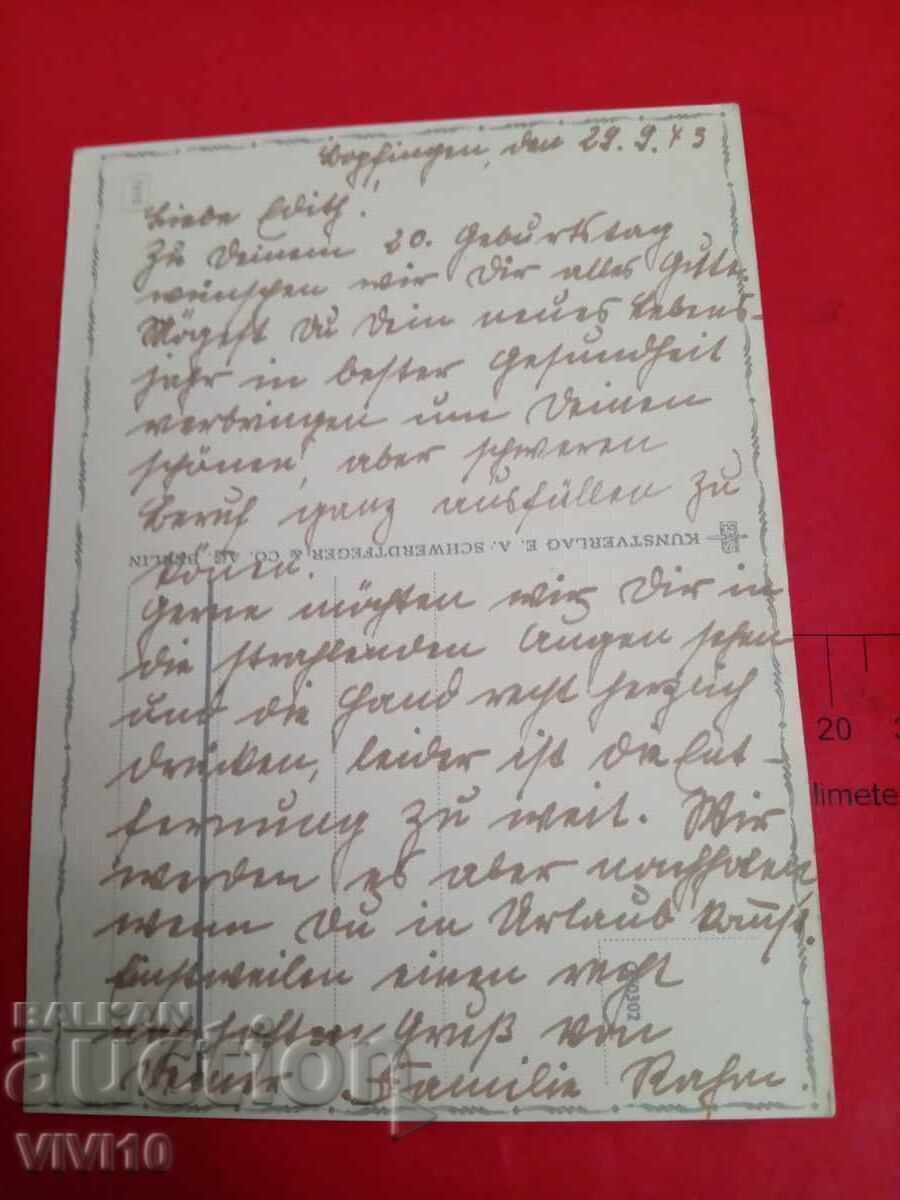 Bopfingen, den 29.9.43
Liebe Edith!
Zu Deinem 20. Geburtstag
wünschen wir Dir alles Gute.
Mögest Du Dein neues Lebens-
jahr in bester Gesundheit
verbringen um Deinen
schönen, aber schweren
Beruf ganz ausfüllen zu
könen.
KUNSTVERLAG E. A. SCHWERDTFEGER & CO. AG. BERLIN
Gerne möchten wir Dir in
die strahlenden Augen sehen
und die Hand recht herzlich
drücken, leider ist die Ent-
fernung zu weit. Wir
werden es aber nachholen
wenn Du in Urlaub kommst.
Einstweilen einen recht
Gruß von
Deiner Familie Rahm.
0302
EAS
20
limete
BALKAN
auction
VIVI10